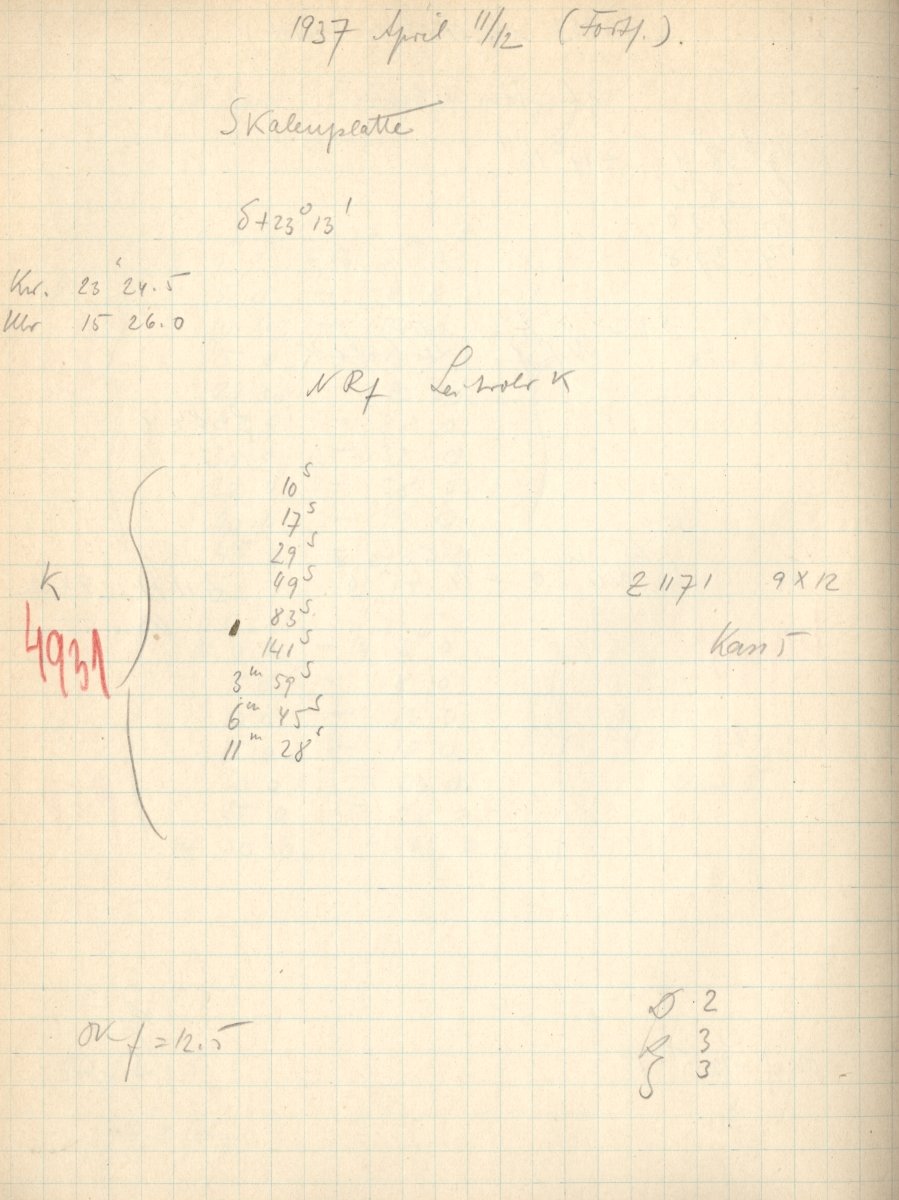 1937 April 11/12 (Forts.).
Skalenplatte
δ+23° 13'
Kr. 23 24.5
Uhr 15 26.0
N Rf Leitrohr K
10s
17s
29s
49s
83s
141s
3m 59s
6m 45s
11m 28s
K
4931
Z 1171 9 X 12
Kass 5
OK f = 12.5
D 2
R 3
S 3